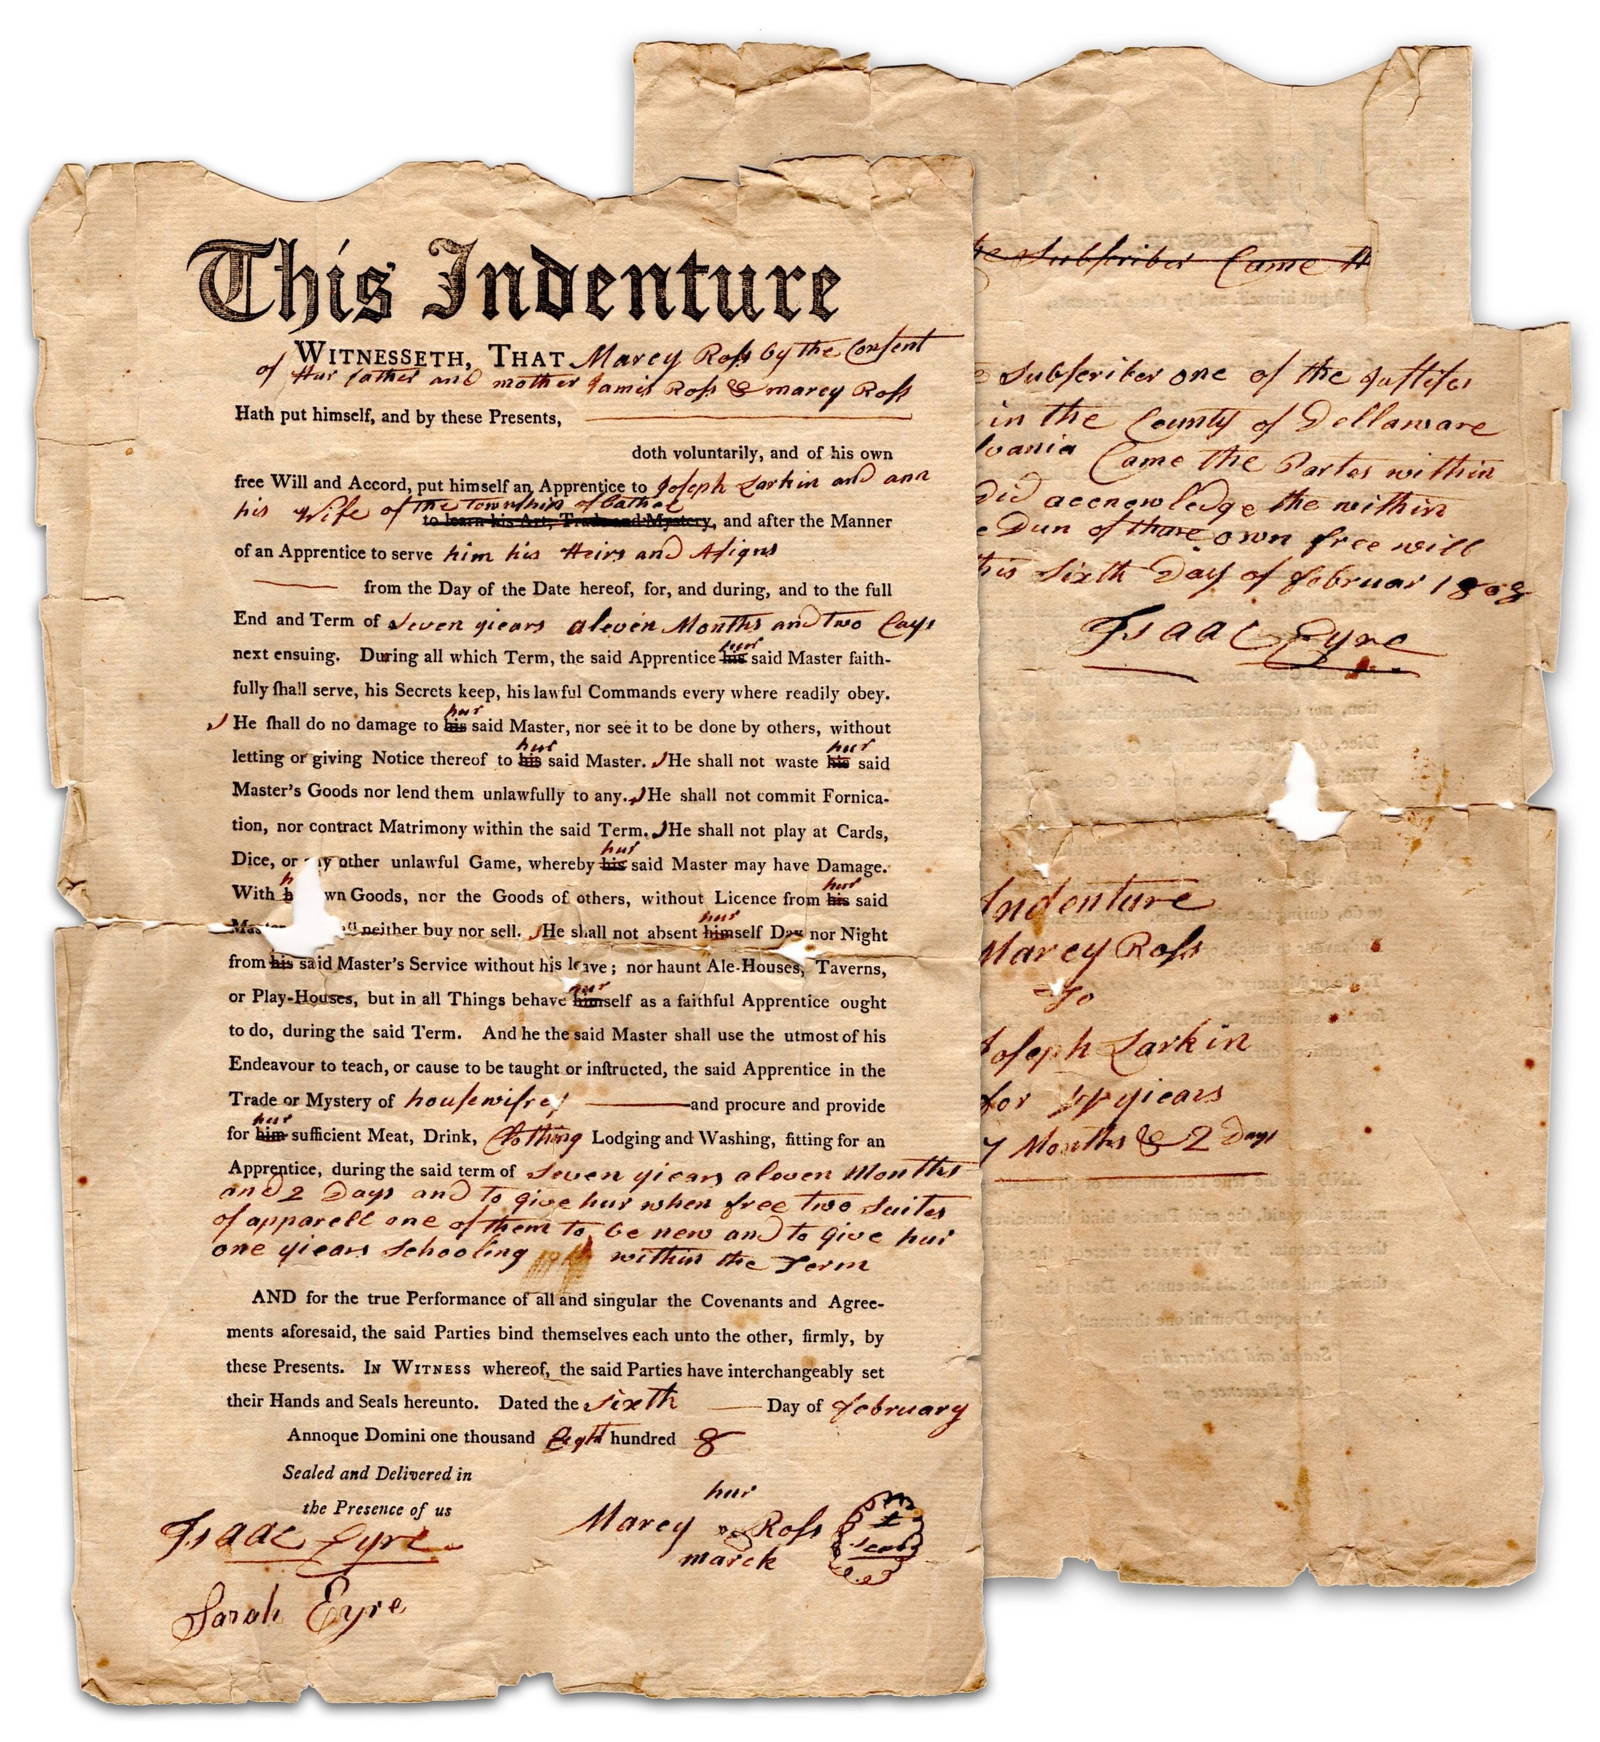 This Indenture
WITNESSETH, THAT Marcy Roſs by the Consent
of Hur father and mother Jamis Roſs & marcy Roſs
Hath put himself, and by these Presents,
doth voluntarily, and of his own
free Will and Accord, put himself an Apprentice to Joseph Larkin and ann
his Wife of the Township of bathel
to learn his Art, Trade and Mystery, and after the Manner
of an Apprentice to serve him his Heirs and Asigns
from the Day of the Date hereof, for, and during, and to the full
End and Term of Seven yiears aleven Months and two Days
hur
next ensuing. During all which Term, the said Apprentice his said Master faith-
fully ſhall serve, his Secrets keep, his lawful Commands every where readily obey.
hur
He ſhall do no damage to his said Master, nor see it to be done by others, without
hur hur
letting or giving Notice thereof to his said Master. He shall not waste his said
Master's Goods nor lend them unlawfully to any. He shall not commit Fornica-
tion, nor contract Matrimony within the said Term. He shall not play at Cards,
hur
Dice, or any other unlawful Game, whereby his said Master may have Damage.
hur
With h wn Goods, nor the Goods of others, without Licence from his said
hur
Master neither buy nor sell. He shall not absent himself Day nor Night
from his said Master's Service without his leave; nor haunt Ale-Houses, Taverns,
hur
or Play-Houses, but in all Things behave himself as a faithful Apprentice ought
to do, during the said Term. And he the said Master shall use the utmost of his
Endeavour to teach, or cause to be taught or inſtructed, the said Apprentice in the
Trade or Mystery of houſewifrey and procure and provide
hur
for him sufficient Meat, Drink, Clothing Lodging and Washing, fitting for an
Apprentice, during the said term of Seven yiears aleven Months
and 2 Days and to give hur when free two Suites
of apparell one of them to be new and to give hur
one yiears Schooling within the Term
AND for the true Performance of all and singular the Covenants and Agree-
ments aforesaid, the said Parties bind themselves each unto the other, firmly, by
these Presents. IN WITNESS whereof, the said Parties have interchangeably set
their Hands and Seals hereunto. Dated the Sixth Day of February
Annoque Domini one thousand Eight hundred 8
Sealed and Delivered in
the Presence of us
Isaac Eyre
Sarah Eyre
hur
Marcy Roſs
marck
Subſcriber Came
Subſcriber one of the Justises
in the County of Dellaware
vania Came the Partes within
did accnowledge the within
Dun of thare own free will
this Sixth Day of februar 1808
Isaac Eyre
Indenture
Marcy Roſs
To
Joseph Larkin
for yiears
Months & 2 Days